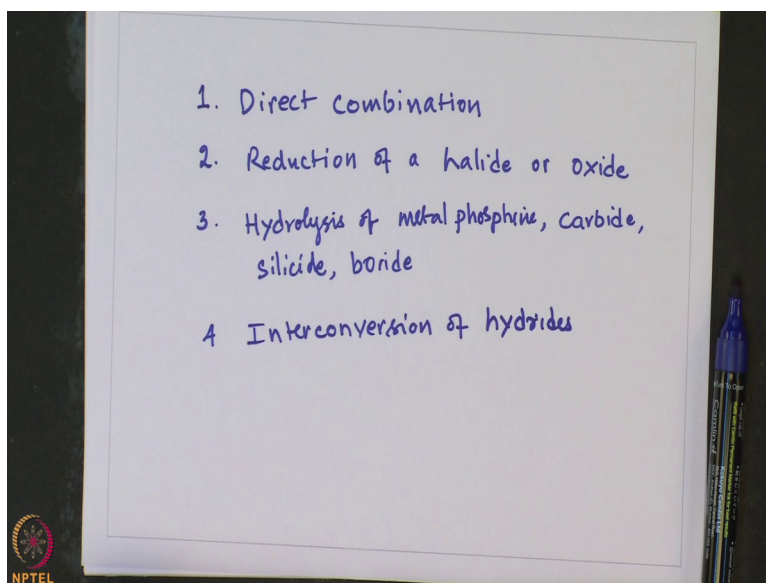 1. Direct combination
2. Reduction of a halide or oxide
3. Hydrolysis of metal phosphine, carbide,
silicide, boride
4 Interconversion of hydrides
NPTEL